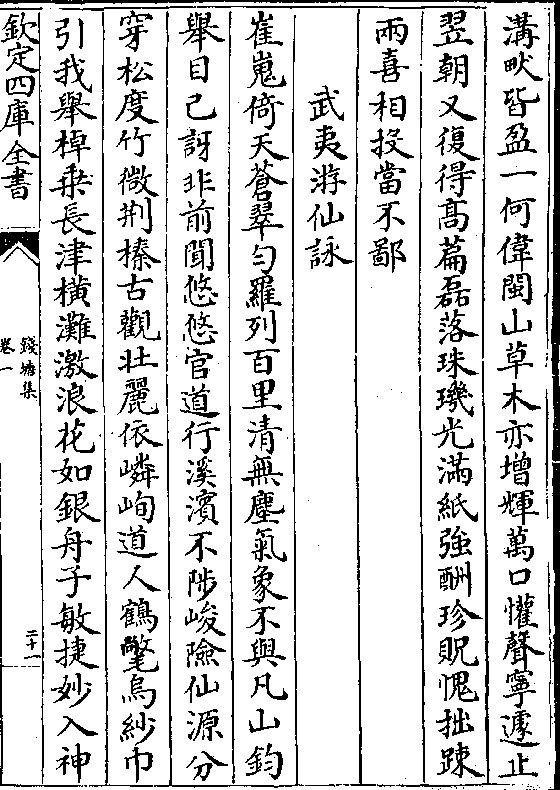 溝畎皆盈一何偉閩山草木亦增輝萬口懽聲寧遽止
翌朝又復得髙篇磊落珠璣光滿紙強酬珍貺愧拙踈
兩喜相投當不鄙
武夷游仙詠
崔嵬倚天蒼翠勻羅列百里清無塵氣象不與凡山鈞
舉目已訝非前聞悠悠官道行溪濱不陟峻險仙源分
穿松度竹微荆榛古觀壯麗依嶙峋道人鶴氅烏紗巾
引我舉棹乗長津橫灘激浪花如銀舟子敏捷妙入神
欽定四庫全書
錢塘集
卷一
二十一